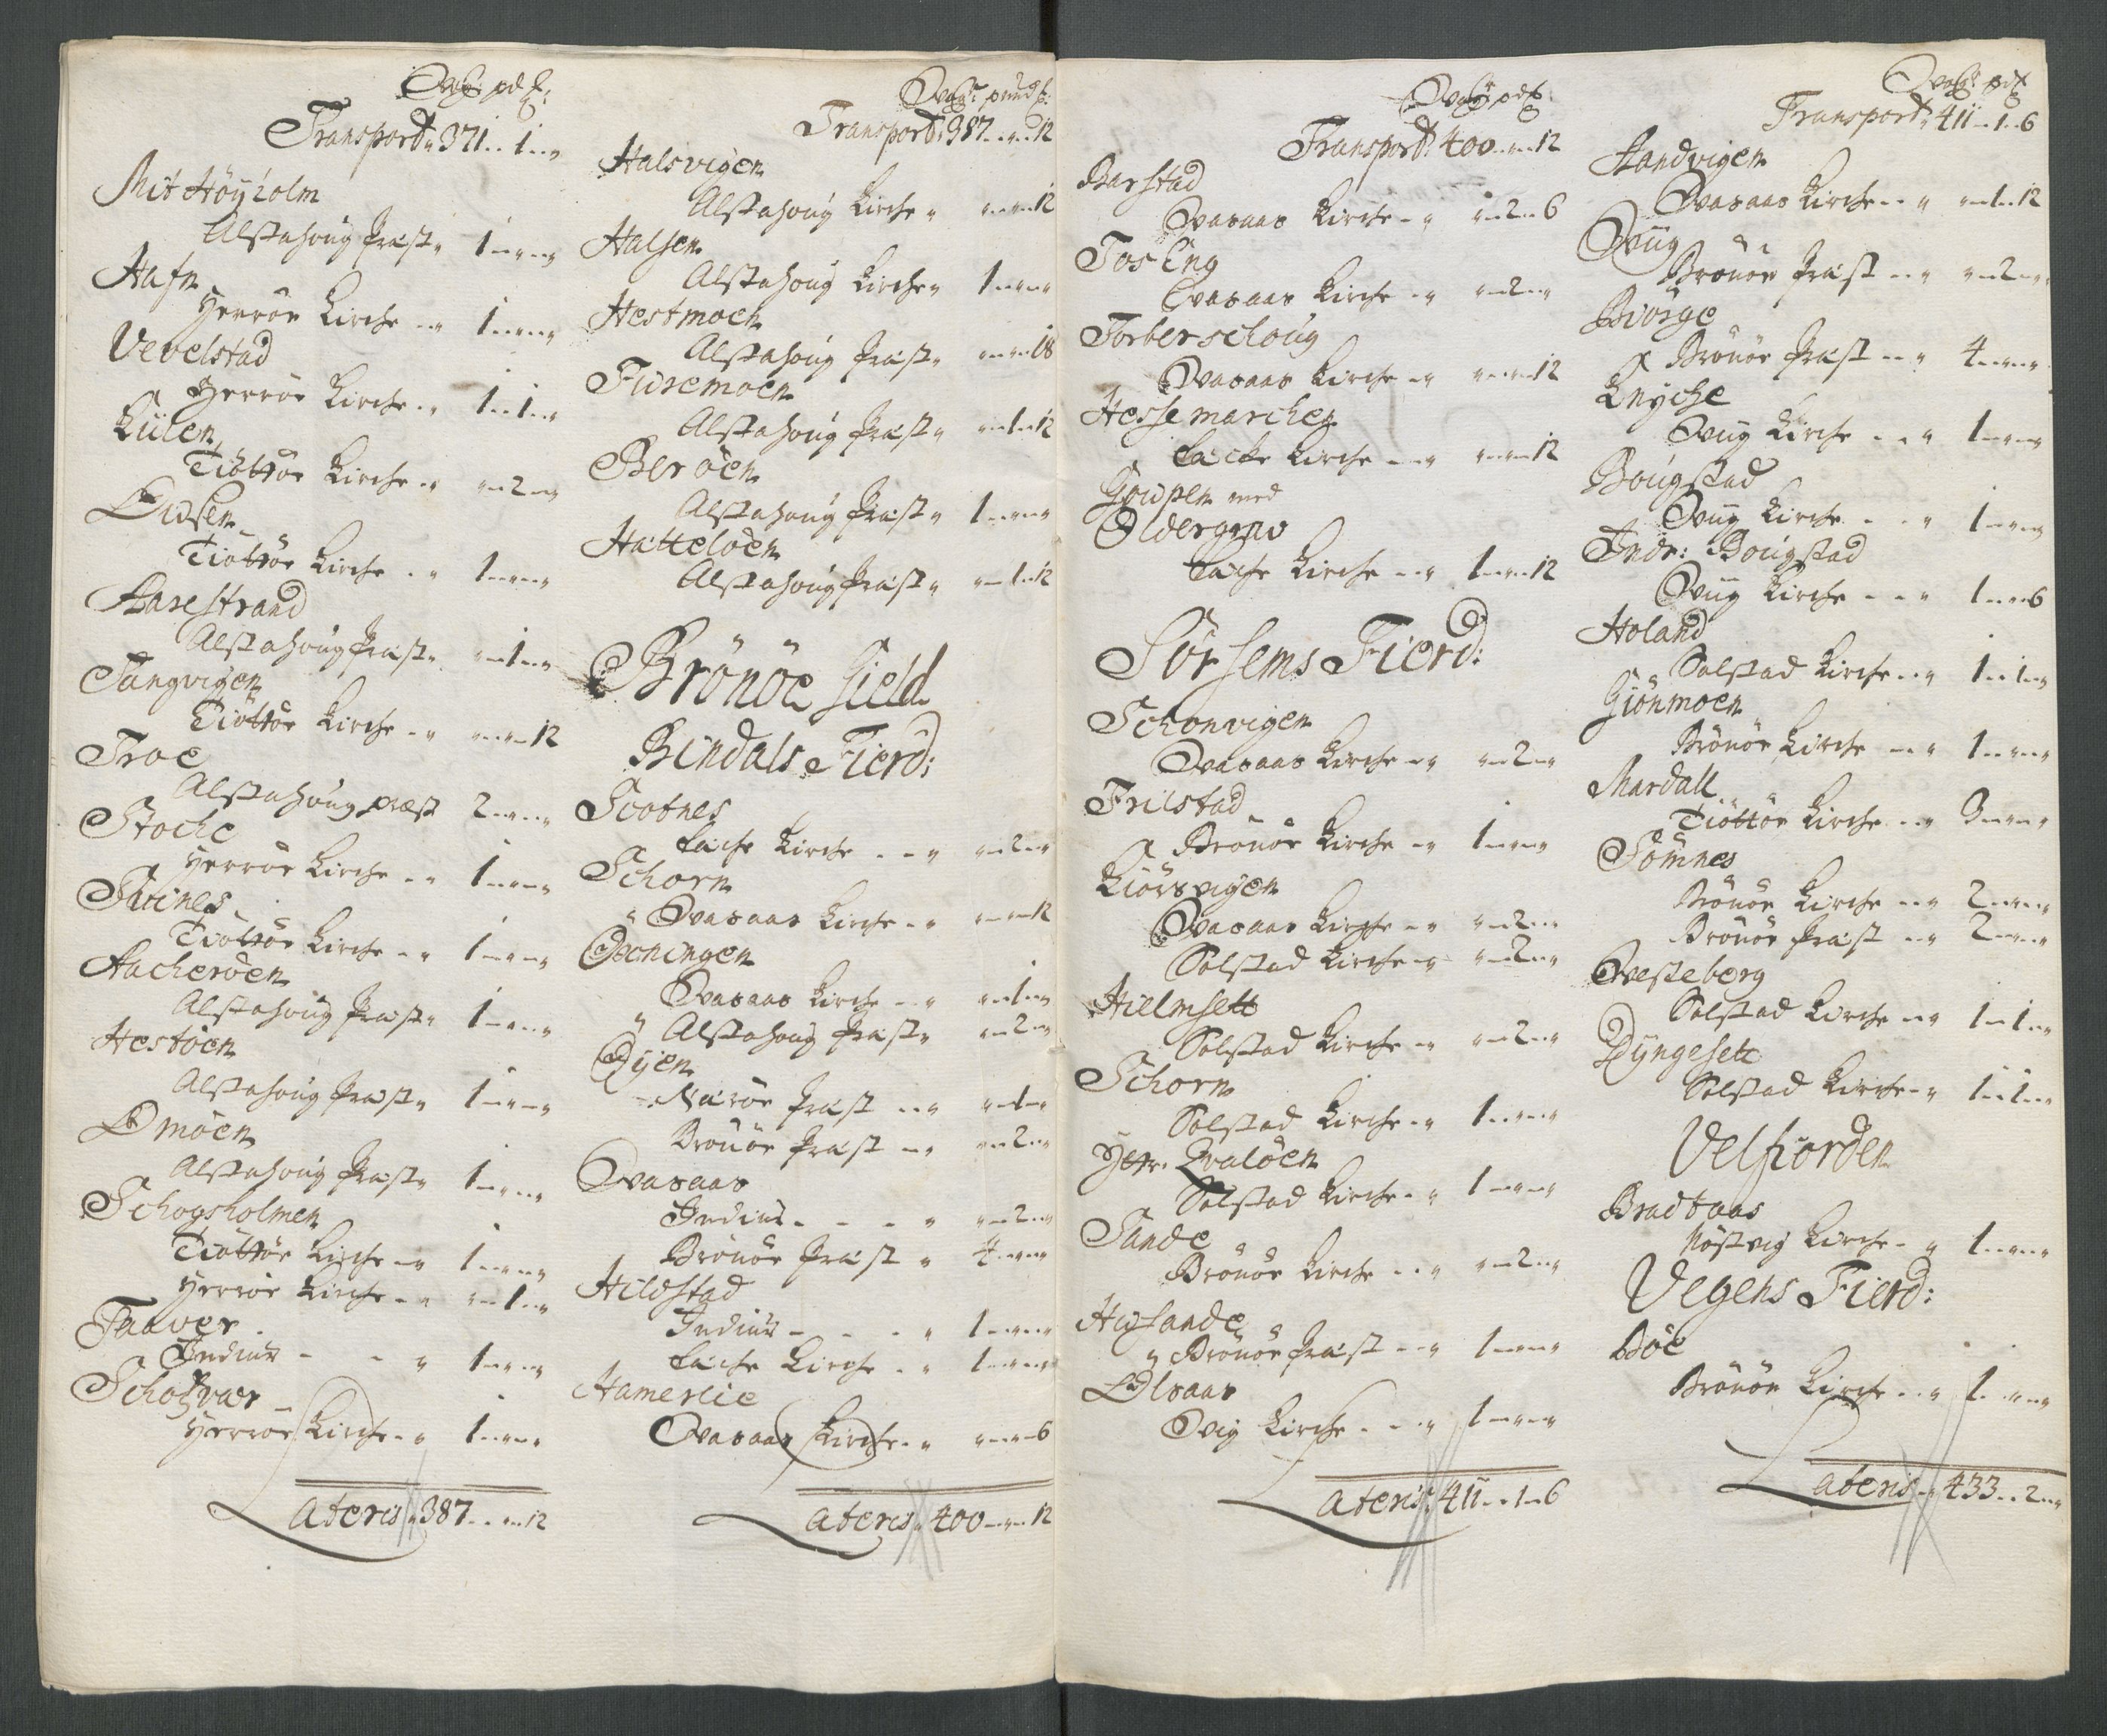 Transport „ 371 .. 1 .. „
Mit Höÿholm
Alstahoug Præst „ 1 .. „ .. „
Hafn
Herröe Kirche .. „ 1 .. „ .. „
Vevelstad
Herröe Kirche .. „ 1 .. 1 .. „
Kulen
Tiöttöe Kirche .. „ „ .. 2 .. „
Eidsen
Tiöttöe Kirche .. „ 1 .. „ .. „
Aarestrand
Alstahoug Præst „ „ .. 1 .. „
Tangvigen
Tiöttöe Kirche .. „ „ .. „ .. 12
Troe
Alstahoug præst 2 .. „ .. „
Stoche
Herröe Kirche .. „ 1 .. „ .. „
Svines
Tiöttöe Kirche .. „ 1 .. „ .. „
Aacheröen
Alstahoug Præst „ 1 .. „ .. „
Hestöen
Alstahoug Præst „ 1 .. „ .. „
Omöen
Alstahoug Præst „ 1 .. „ .. „
Schogsholmen
Tiöttöe Kirche .. „ 1 .. „ .. „
Herröe Kirche .. „ „ .. 1 .. „
Taaver
Indius - - „ 1 .. „ .. „
Schotvær
Herröe Kirche .. „ 1 .. „ .. „
Lateris „ 387 .. „ .. 12
Transport: 387 .. „ .. 12
Halsvigen
Alstahoug Kirche „ „ .. „ .. 12
Halsen
Alstahoug Kirche „ 1 .. „ .. „
Hestmoen
Alstahoug Præst „ „ .. „ .. 18
Furemoen
Alstahoug Præst „ „ .. 1 .. 12
Beröen
Alstahoug Præst „ 1 .. „ .. „
Hatteløen
Alstahoug Præst „ „ .. 1 .. 12
Brönöe Gield
Bindals Fierd:
Scotnes
Lache Kirche .. „ „ .. 2 .. „
Schorn
Ovasaas Kirche .. „ „ .. „ .. 12
Øeningen
Ovasaas Kirche .. „ „ .. 1 .. „
Alstahoug Præst „ „ .. 2 .. „
Øÿen
Næröe Præst .. „ „ .. 1 .. „
Brönöe Præst .. „ „ .. 2 .. „
Ovasaas
Indius - - „ „ .. 2 .. „
Brönöe Præst „ 4 .. „ .. „
Hildstad
Indius - - „ 1 .. „ .. „
Lache Kirche .. „ 1 .. „ .. „
Hamerlie
Ovasaas Kirche .. „ „ .. „ .. 6
Lateris „ 400 .. „ .. 12
Transport: 400 .. „ .. 12
Barstad
Ovasaas Kirche .. „ „ .. 2 .. 6
Tosling
Ovasaas Kirche .. „ „ .. 2 .. „
Torberschoug
Ovasaas Kirche .. „ „ .. „ .. 12
Hessemarchen
Lache Kirche .. „ „ .. „ .. 12
Goupen med
Oldergrav
Lache Kirche .. „ 1 .. „ .. 12
Sörsems Fierd:
Schonvigen
Ovasaas Kirche .. „ „ .. 2 .. „
Frilstad
Brönöe Kirche .. „ 1 .. „ .. „
Kiörsvigen
Ovasaas Kirche .. „ „ .. 2 .. „
Solstad Kirche .. „ „ .. 2 .. „
Hielmsett
Solstad Kirche .. „ „ .. 2 .. „
Schorn
Solstad Kirche .. „ 1 .. „ .. „
Qvaløen
Solstad Kirche .. „ 1 .. „ .. „
Sande
Brönöe Kirche .. „ „ .. 2 .. „
Høÿlande
Brönöe Præst .. „ 1 .. „ .. „
Olsaas
Ovig Kirche .. „ 1 .. „ .. „
Lateris „ 411 .. 1 .. 6
Transport „ 411 .. 1 .. 6
Aandvigen
Ovasaas Kirche .. „ „ .. 1 .. 12
Oviig
Brönöe Præst .. „ „ .. 2 .. „
Biörge
Brönöe Præst .. „ 4 .. „ .. „
Knÿche
Oviig Kirche .. „ 1 .. „ .. „
Bougstad
Oviig Kirche .. „ 1 .. „ .. „
Indr: Bougstad
Oviig Kirche .. „ 1 .. „ .. 6
Holand
Solstad Kirche .. „ 1 .. 1 .. „
Giönmoen
Brönöe Kirche .. „ 1 .. „ .. „
Mardall
Tiöttöe Kirche .. „ 3 .. „ .. „
Sömnes
Brönöe Kirche .. „ 2 .. „ .. „
Brönöe Præst .. „ 2 .. „ .. „
Ovesteberg
Solstad Kirche .. „ 1 .. 1 .. „
Dÿngesett
Solstad Kirche .. „ 1 .. 1 .. „
Velfiorden
Bradtaas
Nöstvig Kirche .. „ 1 .. „ .. „
Vegens Fierd:
Böe
Brönöe Kirche .. „ 1 .. „ .. „
Lateris .. 433 .. 2 .. „